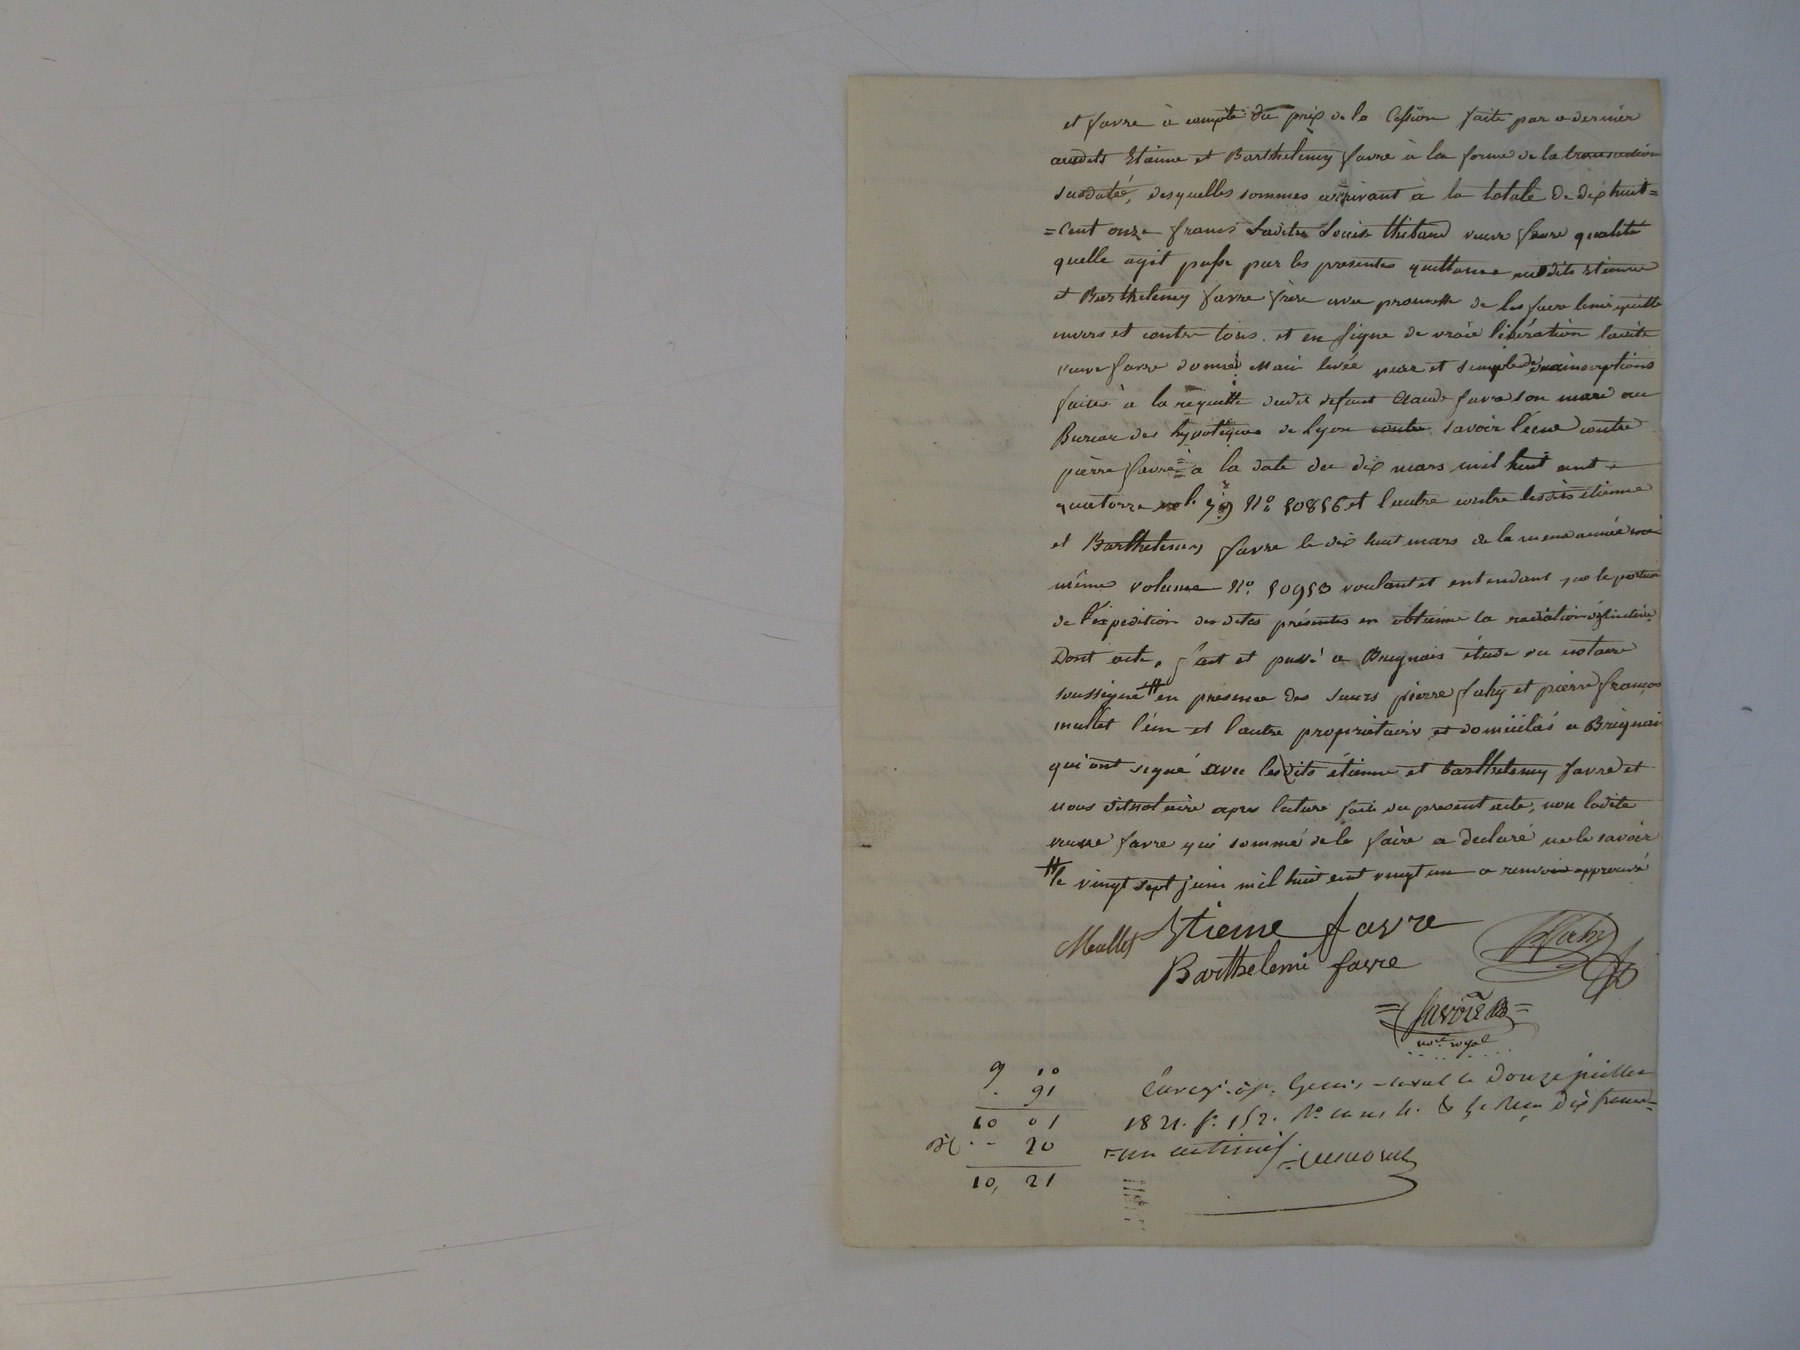 et favre à compte du prix de la Cession faite par ce dernier
auxdits Etienne et Barthelemy favre à la forme de la transaction
susdatée, desquelles sommes arrivant à la totale de dix huit=
=Cent onze francs Ladite Louise thibaud veuve favre qualité
quelle agit passe par les presentes quittance auxdits Etienne
et Barthelemy favre frère avec promesse de les faire tenir quitte
envers et contre tous. et en signe de vraie libération ladite
veuve favre donne main levée pure et simple des inscriptions
faites à la requette dudit defunt Claude favre son mari au
Bureau des hypoteques de Lyon contre savoir l'une contre
pierre favre à la date du dix mars mil huit cent
quatorze N° 50856 et l'autre contre lesdits étienne
et Barthelemy favre le dix huit mars de la meme année
même volume N° 50953 voulant et entendant que le porteur
de l'éxpedition desdites présentes en obtienne la radiation définitive.
Dont acte, fait et passé a Brignais étude du notaire
soussigné # en présence des sieurs pierre fahy et pierre françois
mallet l'un et l'autre propriétaires et domiciliés a Brignais
qui ont signé avec lesdits étienne et barthelemy favre et
nous dit notaire apres lecture faite du present acte, non ladite
veuve favre qui sommé de le faire a declaré ne le savoir
# le vingt sept juin mil huit cent vingt un a renvoi approuvé
Mallet Etienne favre
Barthelemi favre
not. royal
9 10
. 91
10 01
dix -- 20
10, 21
Enregé. à St. Genis-Laval le Douze juillet
1821. f° 152. R° Reçu dix francs
un centimes